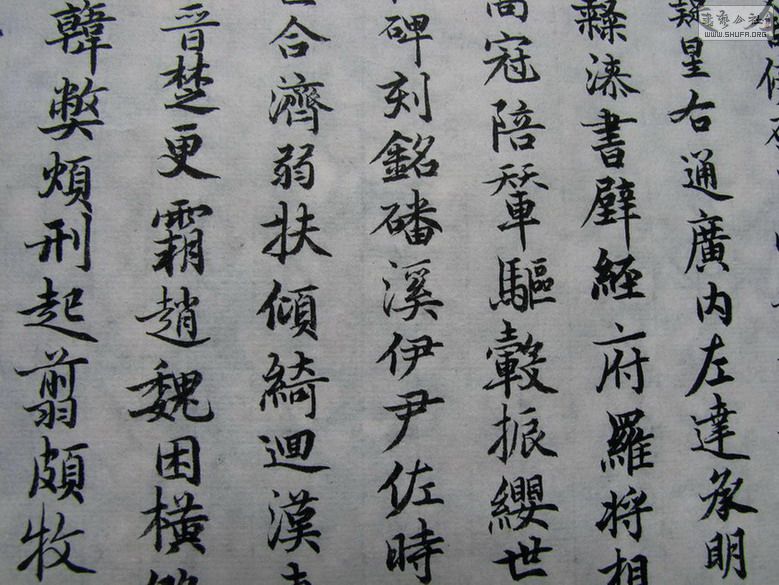 書藝公社
WWW.SHUFA.ORG
疑星右通廣内左達承明
隸漆書壁經府羅將相
高冠陪輦驅轂振纓世
碑刻銘磻溪伊尹佐時
合濟弱扶傾綺迴漢
晉楚更霸趙魏困橫
韓弊煩刑起翦頗牧